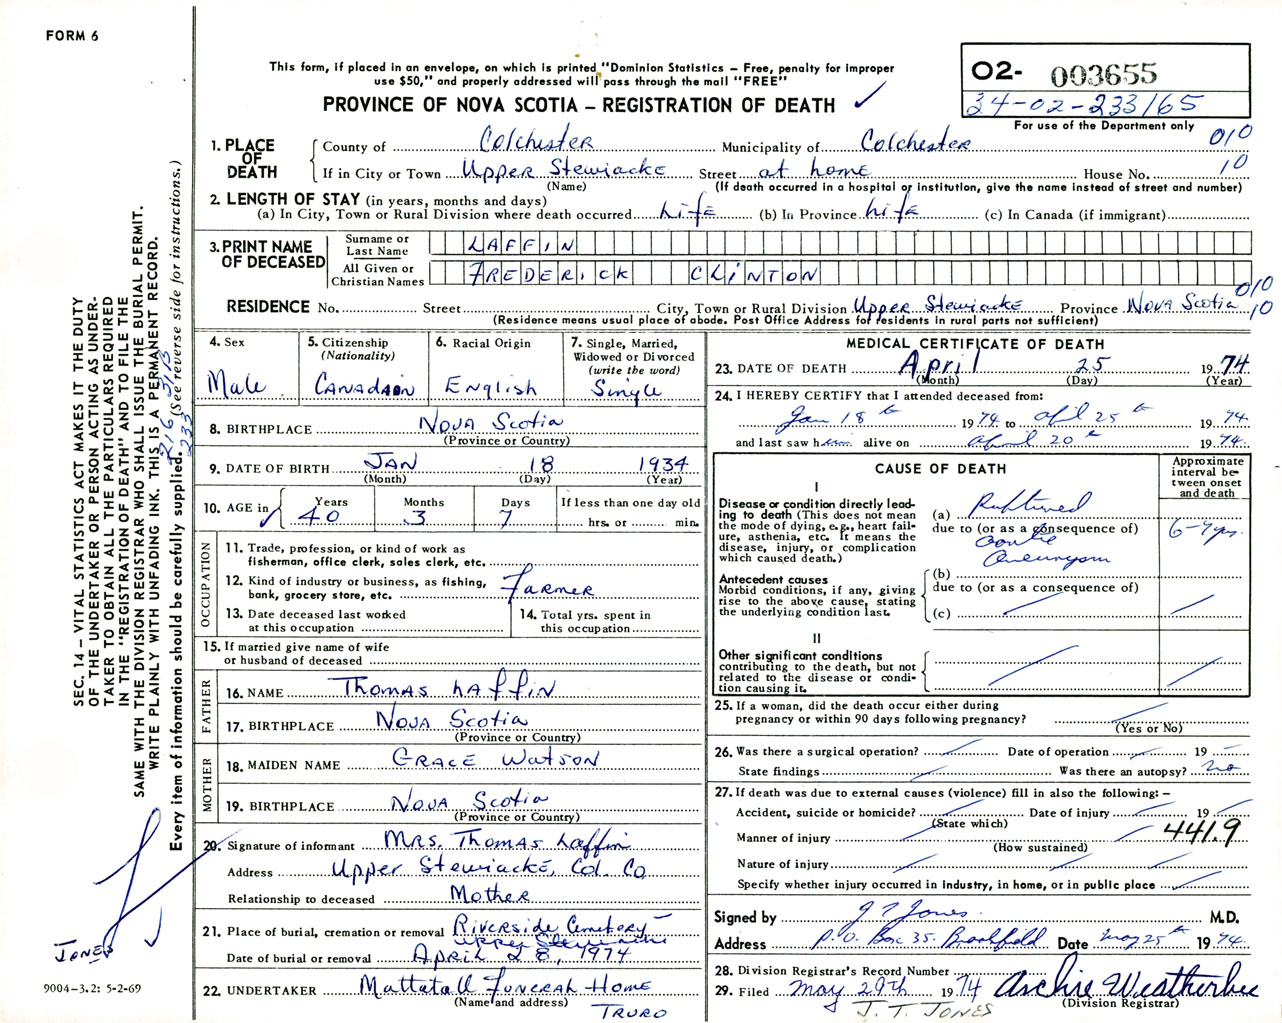 FORM 6
This form, if placed in an envelope, on which is printed "Dominion Statistics – Free, penalty for improper
use $50," and properly addressed will pass through the mail "FREE"
PROVINCE OF NOVA SCOTIA – REGISTRATION OF DEATH ✓
O2- 003655
34-02-233/65
For use of the Department only
1. PLACE OF DEATH
County of Colchester Municipality of Colchester 010
If in City or Town Upper Stewiacke Street at home House No. 10
(Name) (If death occurred in a hospital or institution, give the name instead of street and number)
2. LENGTH OF STAY (in years, months and days)
(a) In City, Town or Rural Division where death occurred Life (b) In Province Life (c) In Canada (if immigrant)
3. PRINT NAME OF DECEASED
Surname or Last Name LAFFIN
All Given or Christian Names FREDERICK CLINTON
010
RESIDENCE No. Street City, Town or Rural Division Upper Stewiacke Province Nova Scotia 10
(Residence means usual place of abode. Post Office Address for residents in rural parts not sufficient)
4. Sex Male
5. Citizenship (Nationality) Canadain
6. Racial Origin English
7. Single, Married, Widowed or Divorced (write the word) Single
8. BIRTHPLACE Nova Scotia
(Province or Country)
9. DATE OF BIRTH JAN 18 1934
(Month) (Day) (Year)
10. AGE in ✓ Years 40 Months 3 Days 7 If less than one day old hrs. or min.
OCCUPATION
11. Trade, profession, or kind of work as
fisherman, office clerk, sales clerk, etc.
12. Kind of industry or business, as fishing,
bank, grocery store, etc. Farmer
13. Date deceased last worked
at this occupation
14. Total yrs. spent in
this occupation
15. If married give name of wife
or husband of deceased
FATHER
16. NAME Thomas Laffin
17. BIRTHPLACE Nova Scotia
(Province or Country)
MOTHER
18. MAIDEN NAME Grace Watson
19. BIRTHPLACE Nova Scotia
(Province or Country)
20. Signature of informant Mrs. Thomas Laffin
Address Upper Stewiacke, Col. Co
Relationship to deceased Mother
21. Place of burial, cremation or removal Riverside Cemetery –
Upper Stewiacke
Date of burial or removal April 28, 1974
22. UNDERTAKER Mattatall Funeral Home
(Name and address) TRURO
MEDICAL CERTIFICATE OF DEATH
23. DATE OF DEATH April 25 1974
(Month) (Day) (Year)
24. I HEREBY CERTIFY that I attended deceased from:
Jan 18th 1974 to April 25th 1974
and last saw him alive on April 20th 1974
CAUSE OF DEATH
Approximate interval between onset and death
I
Disease or condition directly lead-
ing to death (This does not mean
the mode of dying, e.g., heart fail-
ure, asthenia, etc. It means the
disease, injury, or complication
which caused death.)
(a) Ruptured
due to (or as a consequence of)
aortic
aneurysm
6-7 yrs.
Antecedent causes
Morbid conditions, if any, giving
rise to the above cause, stating
the underlying condition last.
(b)
due to (or as a consequence of)
(c)
II
Other significant conditions
contributing to the death, but not
related to the disease or condi-
tion causing it.
25. If a woman, did the death occur either during
pregnancy or within 90 days following pregnancy?
(Yes or No)
26. Was there a surgical operation? Date of operation 19
State findings Was there an autopsy? no
27. If death was due to external causes (violence) fill in also the following: –
Accident, suicide or homicide? Date of injury 19
(State which) 441.9
Manner of injury
(How sustained)
Nature of injury
Specify whether injury occurred in Industry, in home, or in public place
Signed by J T Jones M.D.
Address P.O. Box 35. Brookfield Date May 25th 1974
28. Division Registrar's Record Number
29. Filed May 29th 1974 Archie Weatherbee
(Division Registrar)
J. T. JONES
SEC. 14 – VITAL STATISTICS ACT MAKES IT THE DUTY
OF THE UNDERTAKER OR PERSON ACTING AS UNDER-
TAKER TO OBTAIN ALL THE PARTICULARS REQUIRED
IN THE "REGISTRATION OF DEATH" AND TO FILE THE
SAME WITH THE DIVISION REGISTRAR WHO SHALL ISSUE THE BURIAL PERMIT.
WRITE PLAINLY WITH UNFADING INK. THIS IS A PERMANENT RECORD.
Every item of information should be carefully supplied. (See reverse side for instructions.)
233
JONES
9004-3.2: 5-2-69